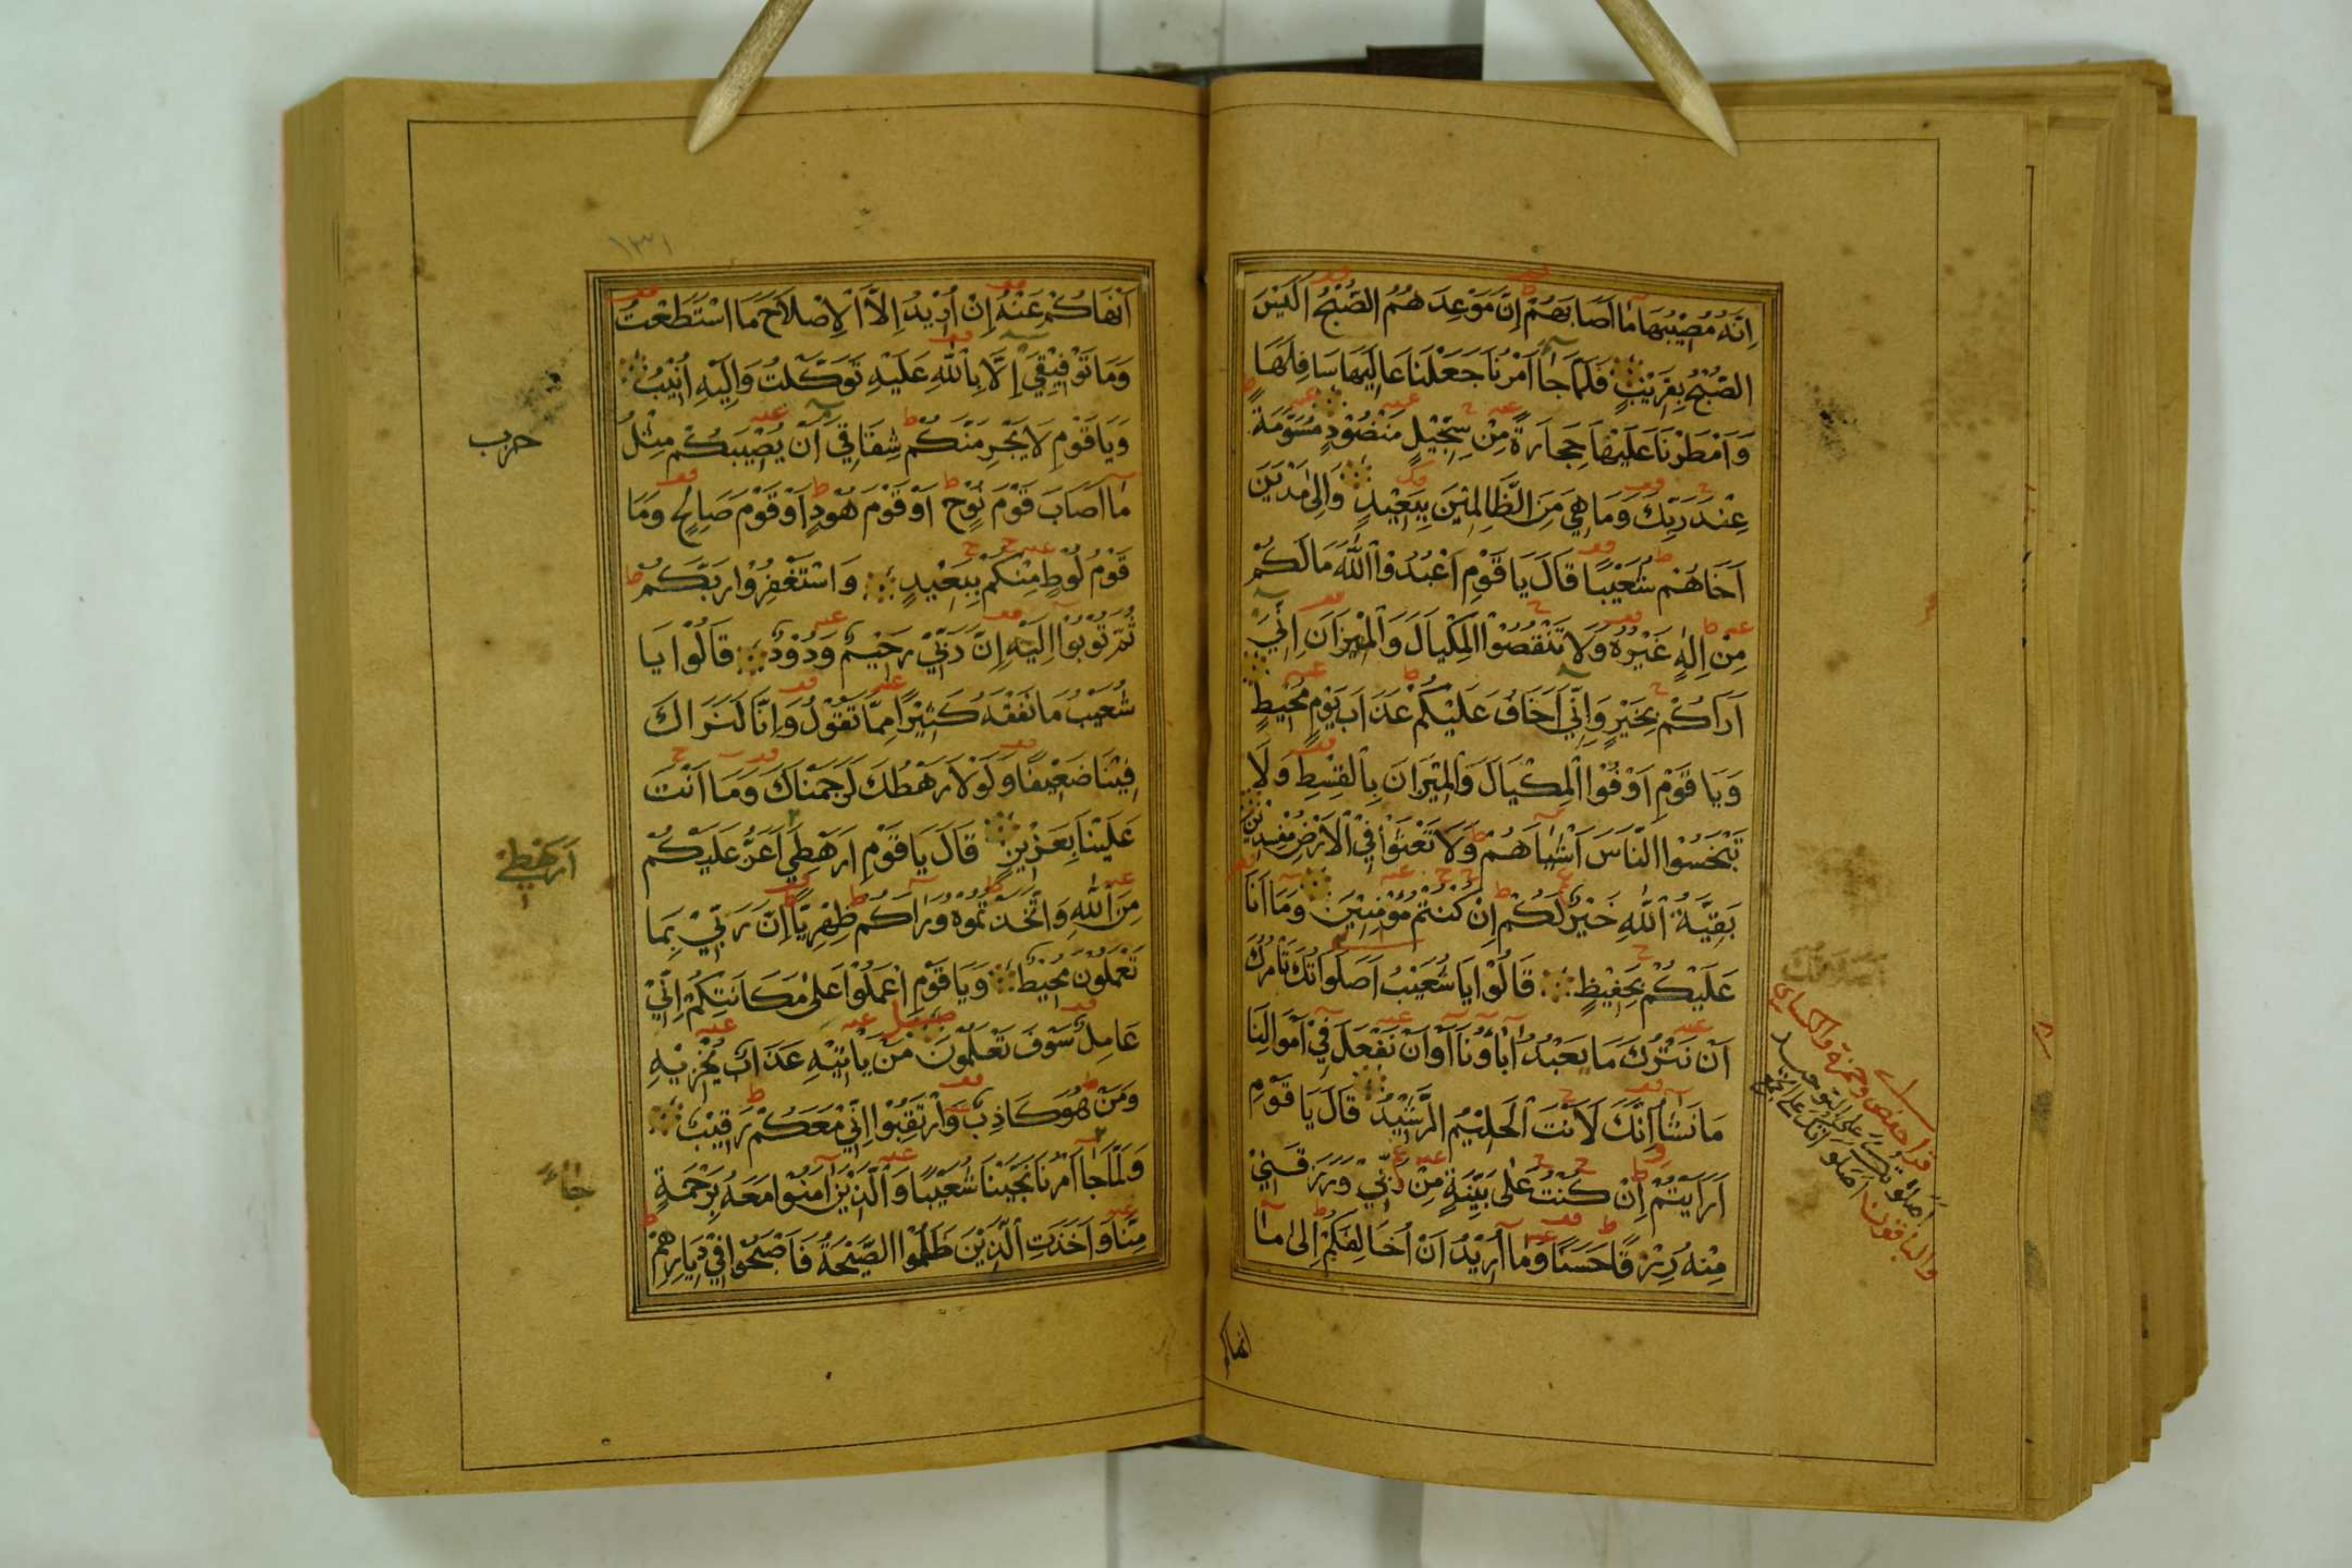 اِنَّهُ مُصِيْبُهَا مَا اَصَابَهُمْ اِنَّ مَوْعِدَهُمُ الصُّبْحُ اَلَيْسَ
الصُّبْحُ بِقَرِيْبٍ فَلَمَّا جَا اَمْرُنَا جَعَلْنَا عَالِيَهَا سَافِلَهَا
وَاَمْطَرْنَا عَلَيْهَا حِجَارَةً مِنْ سِجِّيْلٍ مَنْضُوْدٍ مُسَوَّمَةً
عِنْدَ رَبِّكَ وَمَا هِيَ مِنَ الظَّالِمِيْنَ بِبَعِيْدٍ وَاِلٰى مَدْيَنَ
اَخَاهُمْ شُعَيْبًا قَالَ يَا قَوْمِ اعْبُدُوْا اللّٰهَ مَا لَكُمْ
مِنْ اِلٰهٍ غَيْرُهُ وَلَا تَنْقُصُوْا الْمِكْيَالَ وَالْمِيْزَانَ اِنِّيْ
اَرَاكُمْ بِخَيْرٍ وَاِنِّيْ اَخَافُ عَلَيْكُمْ عَذَابَ يَوْمٍ مُحِيْطٍ
وَيَا قَوْمِ اَوْفُوْا الْمِكْيَالَ وَالْمِيْزَانَ بِالْقِسْطِ وَلَا
تَبْخَسُوْا النَّاسَ اَشْيَاهُمْ وَلَا تَعْثَوْا فِيْ الْاَرْضِ مُفْسِدِيْنَ
بَقِيَّةُ اللّٰهِ خَيْرٌ لَكُمْ اِنْ كُنْتُمْ مُؤْمِنِيْنَ وَمَا اَنَا
عَلَيْكُمْ بِحَفِيْظٍ قَالُوْا يَا شُعَيْبُ اَصَلَوَاتُكَ تَاْمُرُكَ
اَنْ نَتْرُكَ مَا يَعْبُدُ اٰبَاؤُنَا اَوْ اَنْ نَفْعَلَ فِيْ اَمْوَالِنَا
مَا نَشَا اِنَّكَ لَاَنْتَ الْحَلِيْمُ الرَّشِيْدُ قَالَ يَا قَوْمِ
اَرَاَيْتُمْ اِنْ كُنْتُ عَلٰى بَيِّنَةٍ مِنْ رَبِّيْ وَرَزَقَنِيْ
مِنْهُ رِزْقًا حَسَنًا وَمَا اُرِيْدُ اَنْ اُخَالِفَكُمْ اِلٰى مَا
قرا حفص وحمزة والكساي
اصلوتك على التوحيد
والباقون اصلواتك على الجمع
انهاكم
١٣١
اَنْهَاكُمْ عَنْهُ اِنْ اُرِيْدُ اِلَّا الْاِصْلَاحَ مَا اسْتَطَعْتُ
وَمَا تَوْفِيْقِيْ اِلَّا بِاللّٰهِ عَلَيْهِ تَوَكَّلْتُ وَاِلَيْهِ اُنِيْبُ
وَيَا قَوْمِ لَا يَجْرِمَنَّكُمْ شِقَاقِيْ اَنْ يُصِيْبَكُمْ مِثْلُ
مَا اَصَابَ قَوْمَ نُوْحٍ اَوْ قَوْمَ هُوْدٍ اَوْ قَوْمَ صَالِحٍ وَمَا
قَوْمُ لُوْطٍ مِنْكُمْ بِبَعِيْدٍ وَاسْتَغْفِرُوْا رَبَّكُمْ
ثُمَّ تُوْبُوْا اِلَيْهِ اِنَّ رَبِّيْ رَحِيْمٌ وَدُوْدٌ قَالُوْا يَا
شُعَيْبُ مَا نَفْقَهُ كَثِيْرًا مِمَّا تَقُوْلُ وَاِنَّا لَنَرَاكَ
فِيْنَا ضَعِيْفًا وَلَوْلَا رَهْطُكَ لَرَجَمْنَاكَ وَمَا اَنْتَ
عَلَيْنَا بِعَزِيْزٍ قَالَ يَا قَوْمِ اَرَهْطِيْ اَعَزُّ عَلَيْكُمْ
مِنَ اللّٰهِ وَاتَّخَذْتُمُوْهُ وَرَاكُمْ ظِهْرِيًّا اِنَّ رَبِّيْ بِمَا
تَعْمَلُوْنَ مُحِيْطٌ وَيَا قَوْمِ اعْمَلُوْا عَلٰى مَكَانَتِكُمْ اِنِّيْ
عَامِلٌ سَوْفَ تَعْلَمُوْنَ مَنْ يَاْتِيْهِ عَذَابٌ يُخْزِيْهِ
وَمَنْ هُوَ كَاذِبٌ وَارْتَقِبُوْا اِنِّيْ مَعَكُمْ رَقِيْبٌ
وَلَمَّا جَا اَمْرُنَا نَجَّيْنَا شُعَيْبًا وَالَّذِيْنَ اٰمَنُوْا مَعَهُ بِرَحْمَةٍ
مِنَّا وَاَخَذَتِ الَّذِيْنَ ظَلَمُوْا الصَّيْحَةُ فَاَصْبَحُوْا فِيْ دِيَارِهِمْ
حزب
اَرَهْطِيْ
جَاءَ